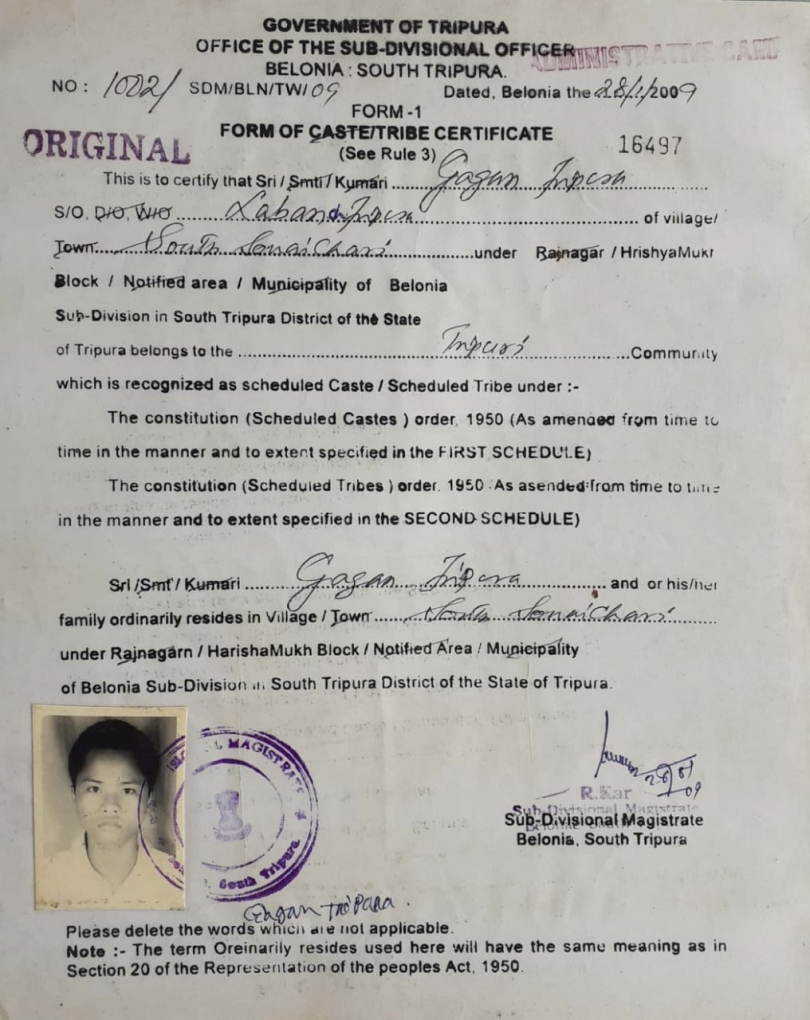 GOVERNMENT OF TRIPURA
OFFICE OF THE SUB-DIVISIONAL OFFICER
BELONIA : SOUTH TRIPURA.
NO : 1022/ SDM/BLN/TW/09 Dated, Belonia the 28/1/2009
FORM -1
ORIGINAL
FORM OF CASTE/TRIBE CERTIFICATE
(See Rule 3)
16497
This is to certify that Sri / Smti / Kumari ........ Gagan Tripura ........
S/O, D/O, W/O ........ Tripura ........ of village/
Town ........ South Sonaichari ........ under Rajnagar / HrishyaMukh
Block / Notified area / Municipality of Belonia
Sub-Division in South Tripura District of the State
of Tripura belongs to the ........ Tripuri ........ Community
which is recognized as scheduled Caste / Scheduled Tribe under :-
The constitution (Scheduled Castes ) order, 1950 (As amended from time to
time in the manner and to extent specified in the FIRST SCHEDULE)
The constitution (Scheduled Tribes ) order. 1950 As asended from time to time
in the manner and to extent specified in the SECOND SCHEDULE)
Sri /Smt / Kumari ........ Gagan Tripura ........ and or his/her
family ordinarily resides in Village / Town ........ South Sonaichari ........
under Rajnagarn / HarishaMukh Block / Notified Area / Municipality
of Belonia Sub-Division in South Tripura District of the State of Tripura.
MAGISTRATE
South Tripura
28/01/09
R.Kar
Sub-Divisional Magistrate
Sub-Divisional Magistrate
Belonia, South Tripura
Gagan Tripara.
Please delete the words which are not applicable.
Note :- The term Oreinarily resides used here will have the same meaning as in
Section 20 of the Representation of the peoples Act, 1950.